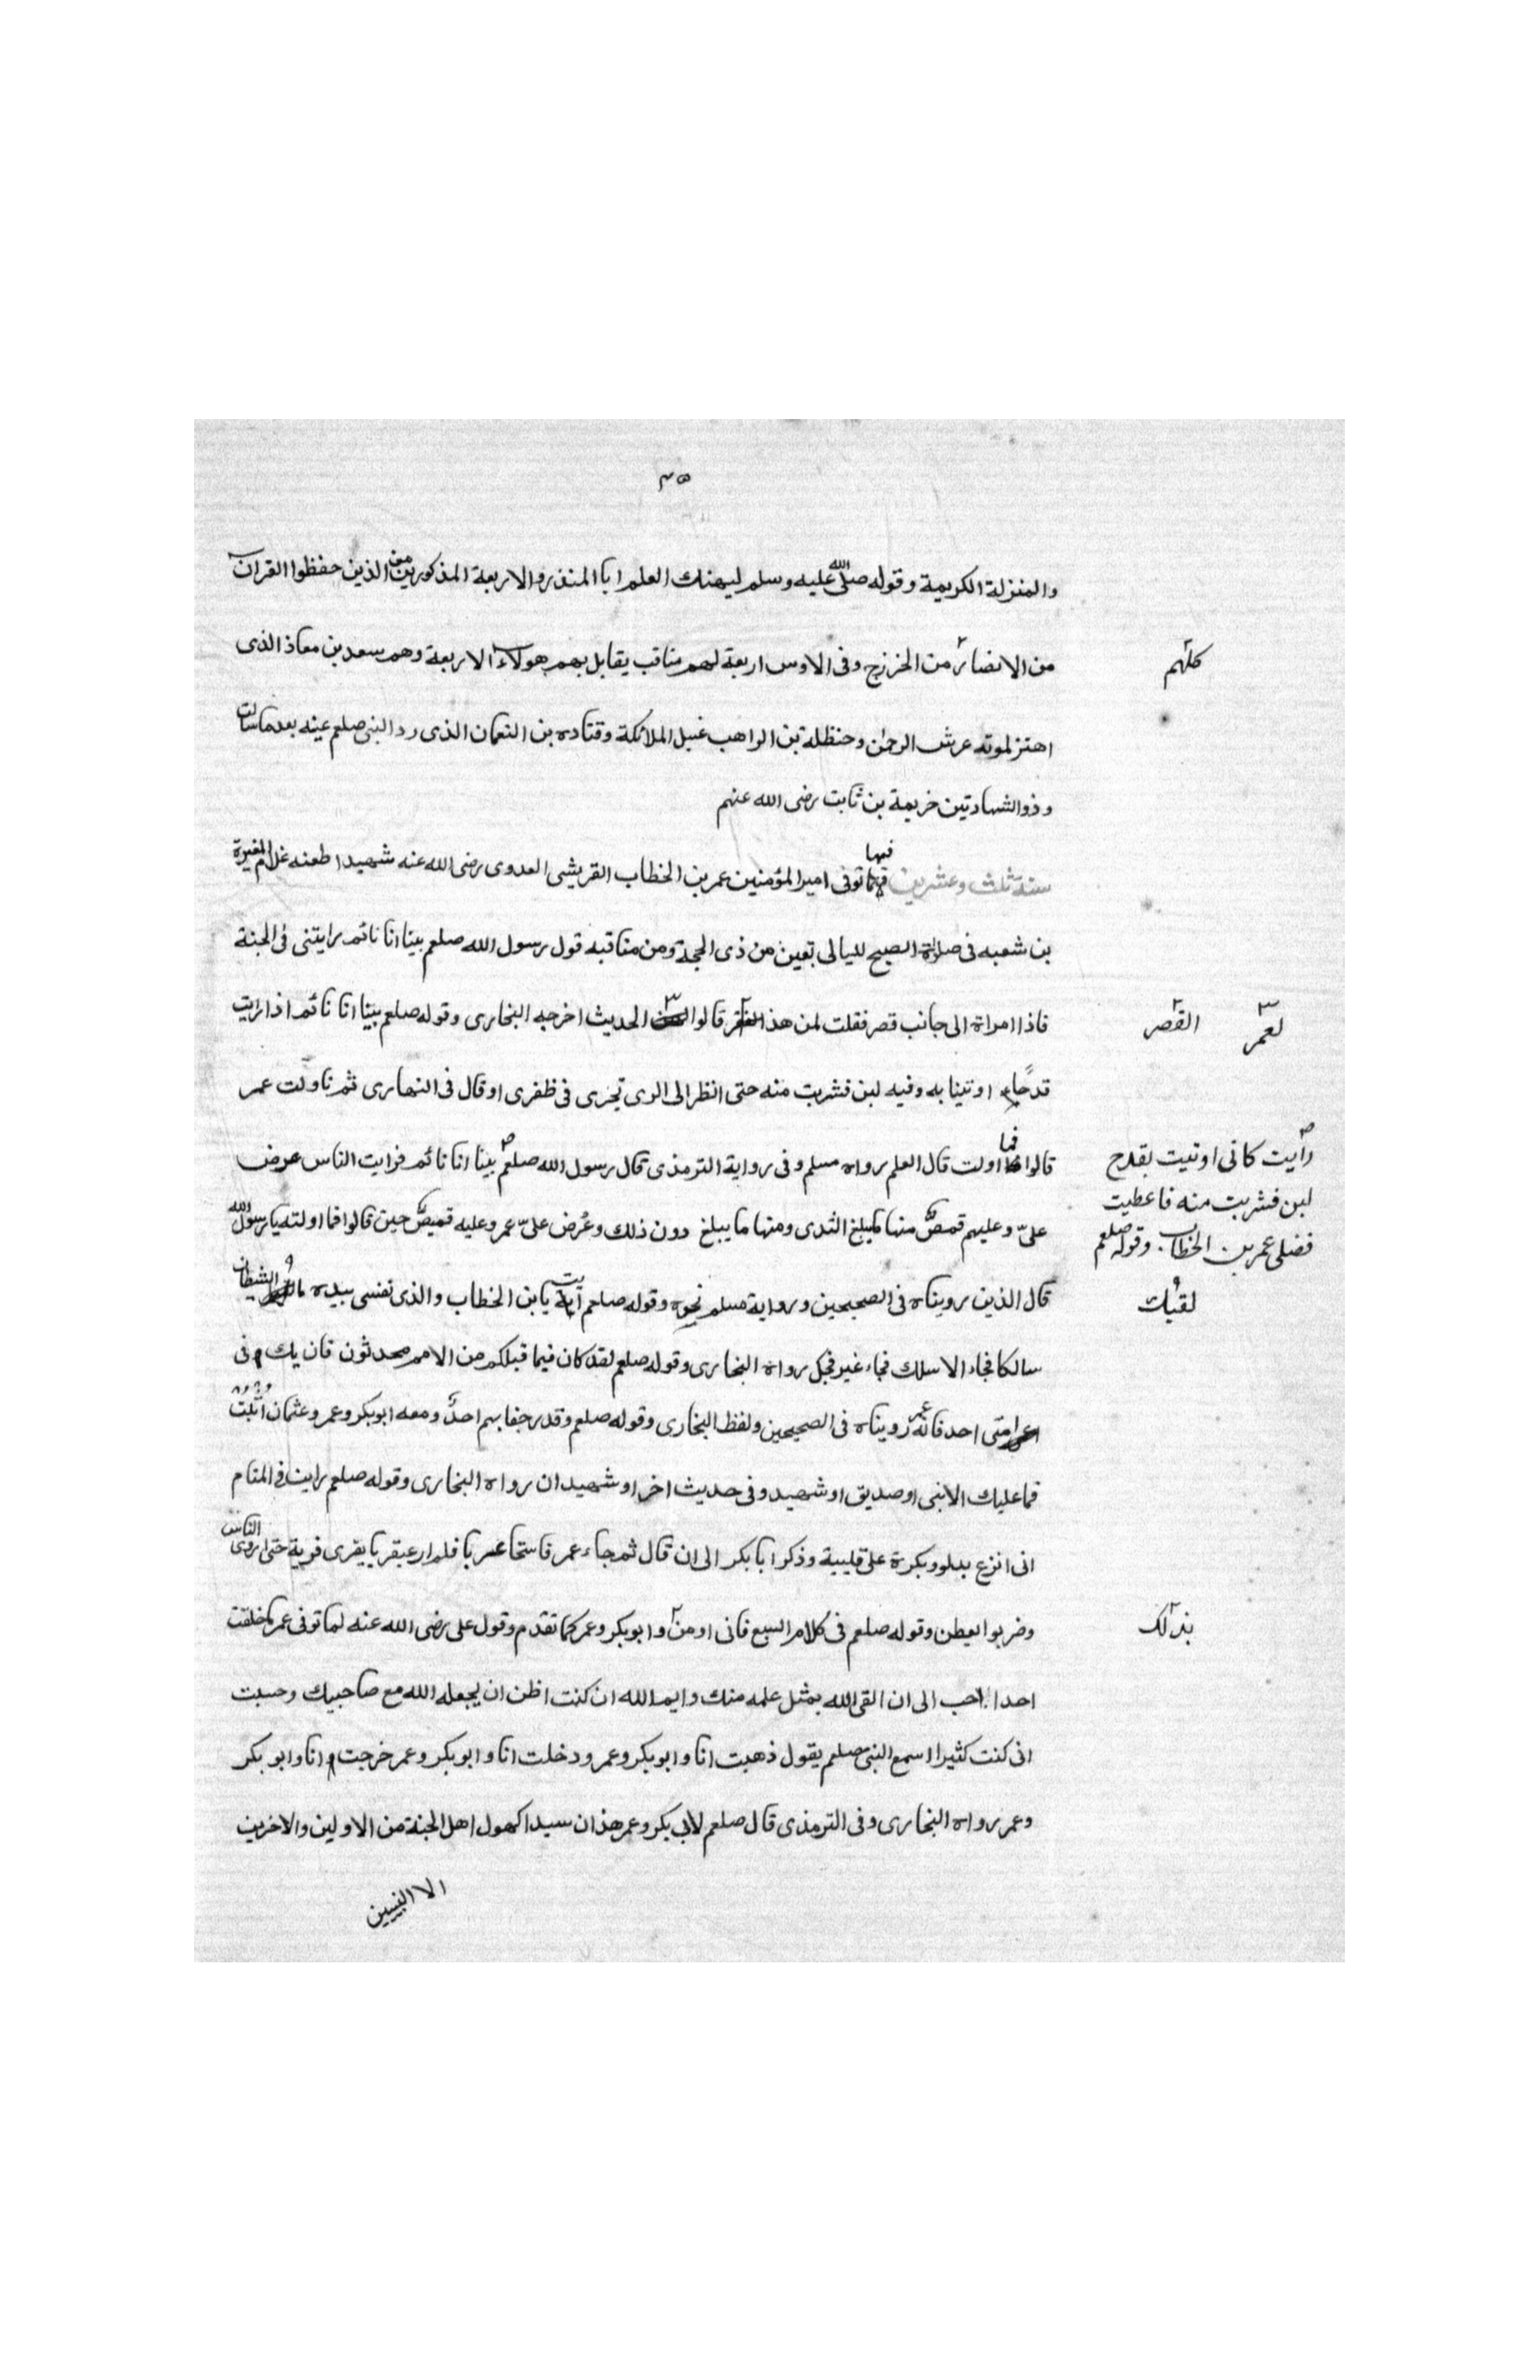 ٣٥
والمنزلة الكريمة وقوله صلى الله عليه وسلم ليهنك العلم ابا المنذر والاربعة المذكورين من الذين حفظوا القران
من الانصار من الخزرج وفى الاوس اربعة لهم مناقب يقابل بهم هولاء الاربعة وهم سعد بن معاذ الذى
كلهم
اهتز لموته عرش الرحمن وحنظلة بن الراهب غسيل الملائكة وقتاده بن النعمان الذى رد النبى صلعم عينه بعدما سالت
وذو الشهادتين خزيمة بن ثابت رضى الله عنهم
سنة ثلث وعشرين فيها توفى امير المؤمنين عمر بن الخطاب القريشى العدوى رضى الله عنه شهيدا طعنه غلام المغيرة
بن شعبه فى صلاة الصبح لليالى بقين من ذى الحجة ومن مناقبه قول رسول الله صلعم بينا انا نائم رايتنى فى الجنة
فاذا امراة الى جانب قصر فقلت لمن هذا قالوا الحديث اخرجه البخارى وقوله صلعم بينا انا نائم اذ رايت
القصر لعمر
قدحا اوتينا به وفيه لبن فشربت منه حتى انظر الى الرى تجرى فى ظفرى او قال فى النهارى ثم ناولت عمر
قالوا فما اولت قال العلم رواه مسلم وفى رواية الترمذى قال رسول الله صلعم بينا انا نائم فرايت الناس عرض
رأيت كانى اوتيت بقدح
لبن فشربت منه فاعطيت
فضلى عمر بن الخطاب وقوله صلعم
علىّ وعليهم قمصٌ منها مايبلغ الثدى ومنها ما يبلغ دون ذلك وعُرض علىّ عمر وعليه قميصٌ حين قالوا فما اولته يا رسول الله
قال الذين رويناه فى الصحيحين ورواية مسلم نحوه وقوله صلعم يا بن الخطاب والذى نفسى بيده ما الشيطان
لقيك
سالكا فجاء الا سلك فجاء غير فجك رواه البخارى وقوله صلعم لقد كان فيما قبلكم من الامم محدثون فان يك فى
امتى احد فانه عمر رويناه فى الصحيحين ولفظ البخارى وقوله صلعم وقد رجفا بهم احدٌ ومعه ابو بكر وعمر وعثمان اثبت
فما عليك الا نبى او صديق او شهيد وفى حديث اخر او شهيدان رواه البخارى وقوله صلعم رايت فى المنام
انى انزع بدلو وبكرة على قليبة وذكر ابا بكر الى ان قال ثم جاء عمر فاستحا فلم ار عبقريا يفرى فرية حتى اروى الناس
وضربوا العطن وقوله صلعم فى كلام السبع فانى اومن وابو بكر وعمر كما تقدم وقول على رضى الله عنه لما توفى عمر ماخلقت
بذالك
احدا احب الى ان القى الله بمثل علمه منك وايم الله ان كنت اظن ان يجعله الله مع صاحبيك وحسبت
انى كنت كثيرا اسمع النبى صلعم يقول ذهبت انا وابو بكر وعمر ودخلت انا وابو بكر وعمر خرجت انا وابو بكر
وعمر رواه البخارى وفى الترمذى قال صلعم لابى بكر وعمر هذان سيدا كهول اهل الجنة من الاولين والاخرين
الا النبيين